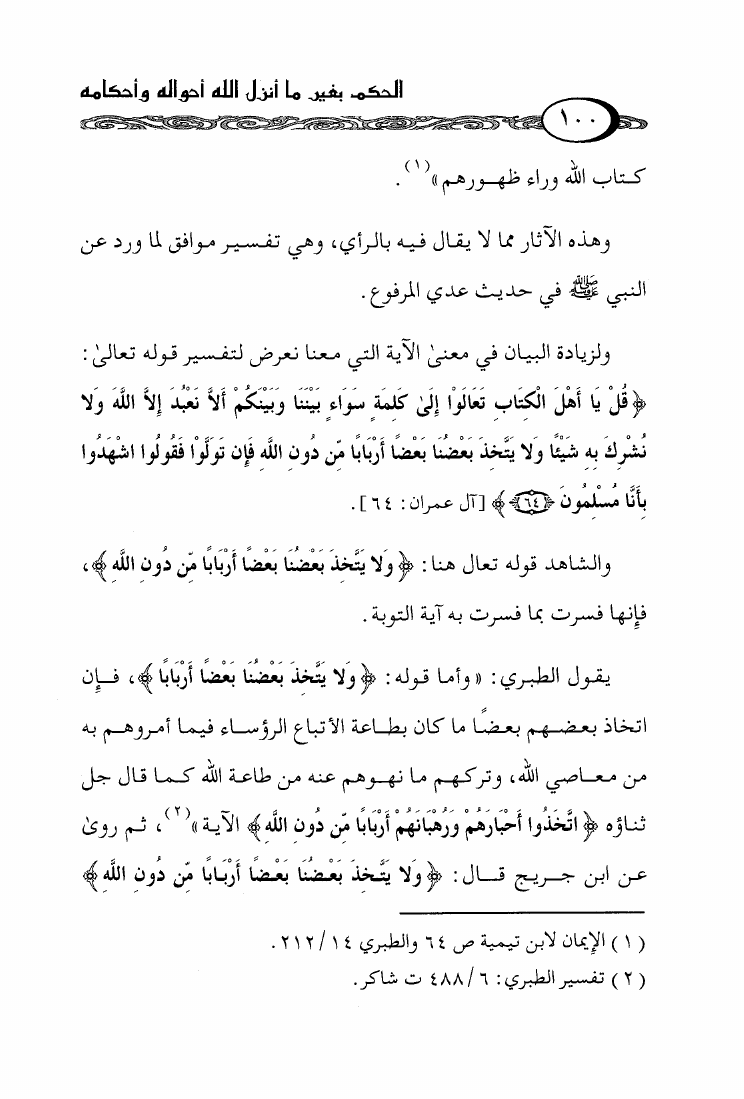 الحكم بغير ما أنزل الله أحواله وأحكامه
١٠٠
كتاب الله وراء ظهورهم»(١).
وهذه الآثار مما لا يقال فيه بالرأي، وهي تفسير موافق لما ورد عن
النبي ﷺ في حديث عدي المرفوع.
ولزيادة البيان في معنىٰ الآية التي معنا نعرض لتفسير قوله تعالىٰ:
﴿قُلْ يَا أَهْلَ الْكِتَابِ تَعَالَوْا إِلَىٰ كَلِمَةٍ سَوَاءٍ بَيْنَنَا وَبَيْنَكُمْ أَلاَّ نَعْبُدَ إِلاَّ اللَّهَ وَلا
نُشْرِكَ بِهِ شَيْئًا وَلا يَتَّخِذَ بَعْضُنَا بَعْضًا أَرْبَابًا مِّن دُونِ اللَّهِ فَإِن تَوَلَّوْا فَقُولُوا اشْهَدُوا
بِأَنَّا مُسْلِمُونَ ﴿٦٤﴾﴾ [آل عمران: ٦٤].
والشاهد قوله تعال هنا: ﴿وَلا يَتَّخِذَ بَعْضُنَا بَعْضًا أَرْبَابًا مِّن دُونِ اللَّهِ﴾،
فإنها فسرت بما فسرت به آية التوبة.
يقول الطبري: «وأما قوله: ﴿وَلا يَتَّخِذَ بَعْضُنَا بَعْضًا أَرْبَابًا﴾، فإن
اتخاذ بعضهم بعضًا ما كان بطاعة الأتباع الرؤساء فيما أمروهم به
من معاصي الله، وتركهم ما نهوهم عنه من طاعة الله كما قال جل
ثناؤه ﴿اتَّخَذُوا أَحْبَارَهُمْ وَرُهْبَانَهُمْ أَرْبَابًا مِّن دُونِ اللَّهِ﴾ الآية»(٢)، ثم روىٰ
عن ابن جريج قال: ﴿وَلا يَتَّخِذَ بَعْضُنَا بَعْضًا أَرْبَابًا مِّن دُونِ اللَّهِ﴾
(١) الإيمان لابن تيمية ص ٦٤ والطبري ١٤/ ٢١٢.
(٢) تفسير الطبري: ٦/ ٤٨٨ ت شاكر.